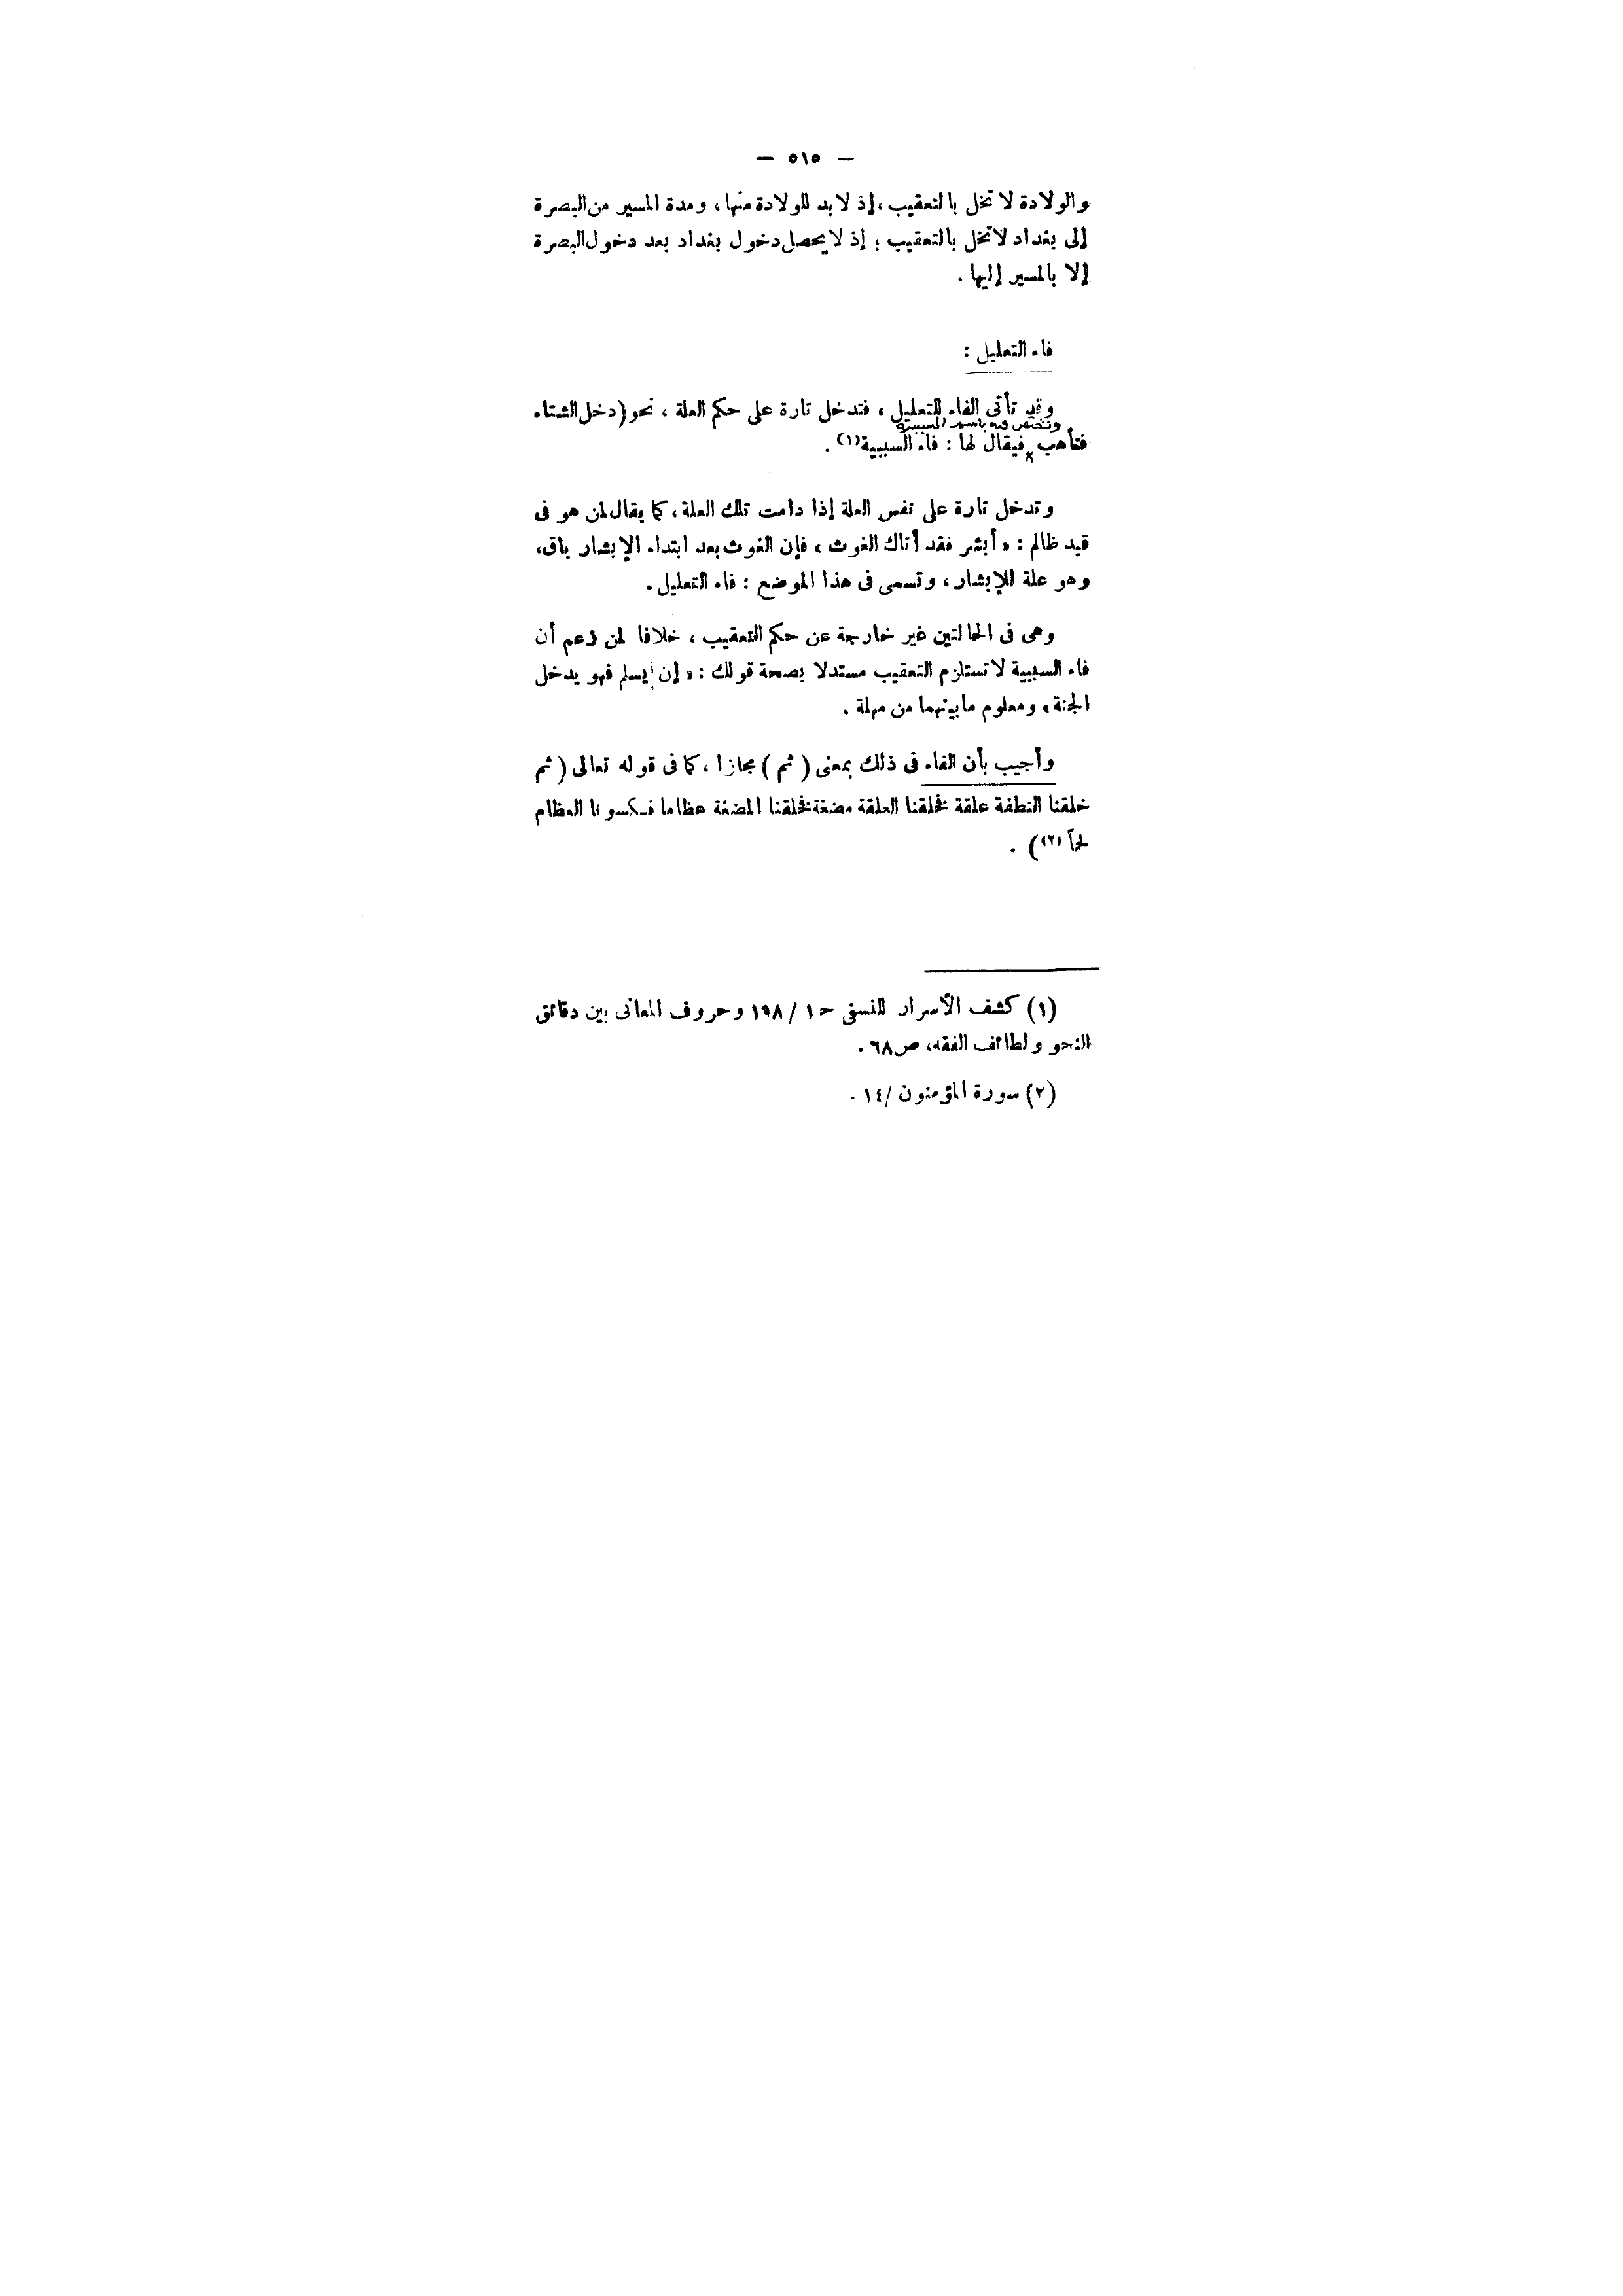 — ٥١٥ —
والولادة لا تخل بالتعقيب، إذ لا بد للولادة منها، ومدة المسير من البصرة
إلى بغداد لا تخل بالتعقيب؛ إذ لا يحصل دخول بغداد بعد دخول البصرة
إلا بالمسير إليها.
فاء التعليل:
وقد تأتى الفاء للتعليل، فتدخل تارة على حكم العلة، نحو (دخل الشتاء
وتختص فيه باسم السببية
فتأهب فيقال لها: فاء السببية(١).
وتدخل تارة على نفس العلة إذا دامت تلك العلة، كما يقال لمن هو فى
قيد ظالم: «أبشر فقد أتاك الغوث» فإن الغوث بعد ابتداء الإبشار باق،
وهو علة للإبشار، وتسمى فى هذا الموضع: فاء التعليل.
وهى فى الحالتين غير خارجة عن حكم التعقيب، خلافا لمن زعم أن
فاء السببية لا تستلزم التعقيب مستدلا بصحة قولك: «إن يسلم فهو يدخل
الجنة» ومعلوم ما بينهما من مهلة.
وأجيب بأن الفاء فى ذلك بمعنى (ثم) مجازا، كما فى قوله تعالى (ثم
خلقنا النطفة علقة فخلقنا العلقة مضغة فخلقنا المضغة عظاما فكسونا العظام
لحماً(٢)).
(١) كشف الأسرار للنسفى حـ ١ / ١٩٨ وحروف المعانى بين دقائق
النحو ولطائف الفقه، ص ٦٨.
(٢) سورة المؤمنون /١٤.